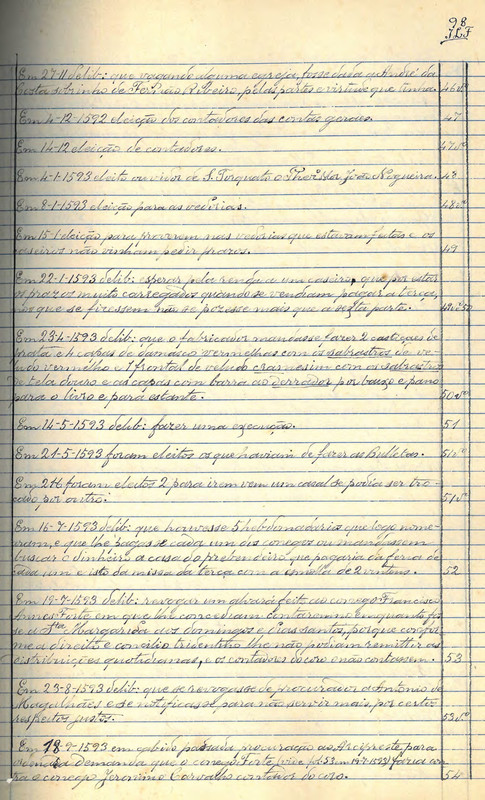 98
J.L.F
Em 27-11 delib: que vagando alguma egreja, fosse dada a André da
Costa sobrinho de Fernão Ribeiro, pelas partes e virtude que tinha. 46 vº
Em 4-12-1592 eleição dos contadores das contas geraes. 47
Em 14-12 eleição de contadores. 47 vº
Em 4-1-1593 eleito ouvidor de S. Torquato o João Nogueira. 48
Em 8-1-1593 eleição para as vedorias. 48 vº
Em 15-1 eleição para proverem nas vedorias que estavam feitas e os
caseiros não vinham pedir prazos. 49
Em 22-1-1593 delib: esperar pela renda a um caseiro, que por estar
os prazos muito carregados quando se vendiam pagar a terça,
nos que se fizessem não se pozesse mais que a sexta parte. 50
Em 23-4-1593 delib: que o fabricador mandasse fazer 2 castiçaes de
prata e h capas de damasco vermelhas com os sabrastos de ve-
ludo vermelho e 1 frontal de veludo cramesim com os sabrastos
de tela douro e as capas com barra ao derrador por baixo e pano
para o livro e para estante. 50 vº
Em 14-5-1593 delib: fazer uma execução. 51
Em 21-5-1593 foram eleitos os que haviam de fazer as bulletas. 51 vº
Em foram eleitos 2 para irem ver um casal se podia ser tro-
cado por outro. 51 vº
Em 16-7-1593 delib: que houvesse 5 hebdomadarios que logo nome-
aram, e que lhe pagasse cada um dos conegos ou mandassem
buscar o dinheiro a casa do prebendeiro que pagaria da feria de
cada um e isto da missa da terça com a esmola de 2 vintens. 52
Em 19-7-1593 delib: revogar um alvará feito ao conego Francisco
Annes Forte em que lhe concediam contarem-no emquanto fos-
se a Sta Margarida aos domingos e dias santos, porque confor-
me a direito e concilio tridentino lhe não podiam remittir as
distribuições quotidianas, e os contadores do coro o não contassem. 53
Em 23-8-1593 delib: que se revogasse de procurador a Antonio de
Magalhães e se notificasse para não servir mais por certos
respeitos justos. 53 vº
Em 18-9-1593 em cabido passada procuração ao Arcipreste, para
a demanda que o conego Forte (vide fl. 53 em 19-7-1593) fazia con-
tra o conego Jeronimo Carvalho contador do coro. 54